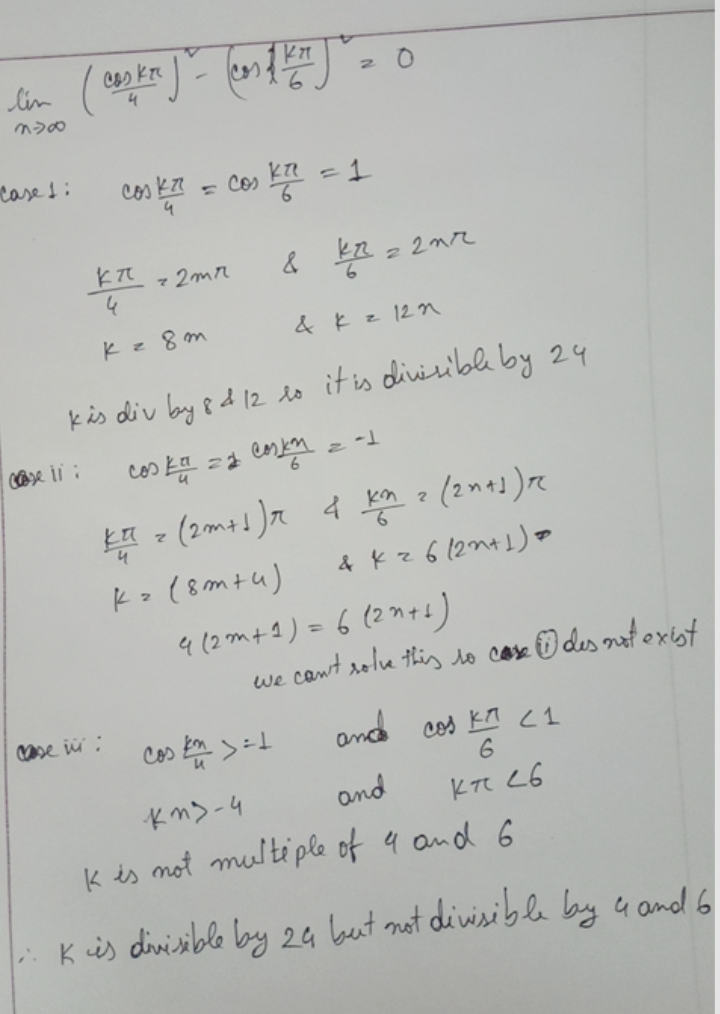 lim n→∞ (cos kπ/4)^n - (cos kπ/6)^n = 0
case 1: cos kπ/4 = cos kπ/6 = 1
kπ/4 = 2mπ & kπ/6 = 2nπ
k = 8m & k = 12n
k is div by 8 & 12 so it is divisible by 24
case ii: cos kπ/4 = cos kπ/6 = -1
kπ/4 = (2m+1)π & kπ/6 = (2n+1)π
k = (8m+4) & k = 6(2n+1)
4(2m+1) = 6(2n+1)
we can't solve this so case (ii) des not exist
case iii: cos kπ/4 > -1 and cos kπ/6 < 1
kπ > -4 and kπ < 6
k is not multiple of 4 and 6
∴ k is divisible by 24 but not divisible by 4 and 6